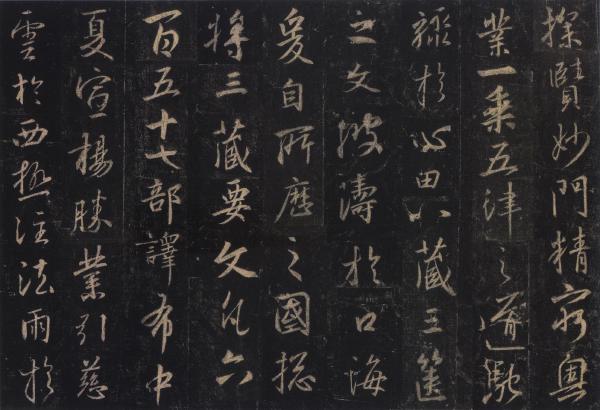 探賾妙門精窮奧
業一乘五律之道馳
驟於心田八藏三篋
之文波濤於口海
爰自所歷之國総
將三藏要文凡六
百五十七部譯布中
夏宣揚勝業引慈
雲於西極注法雨於